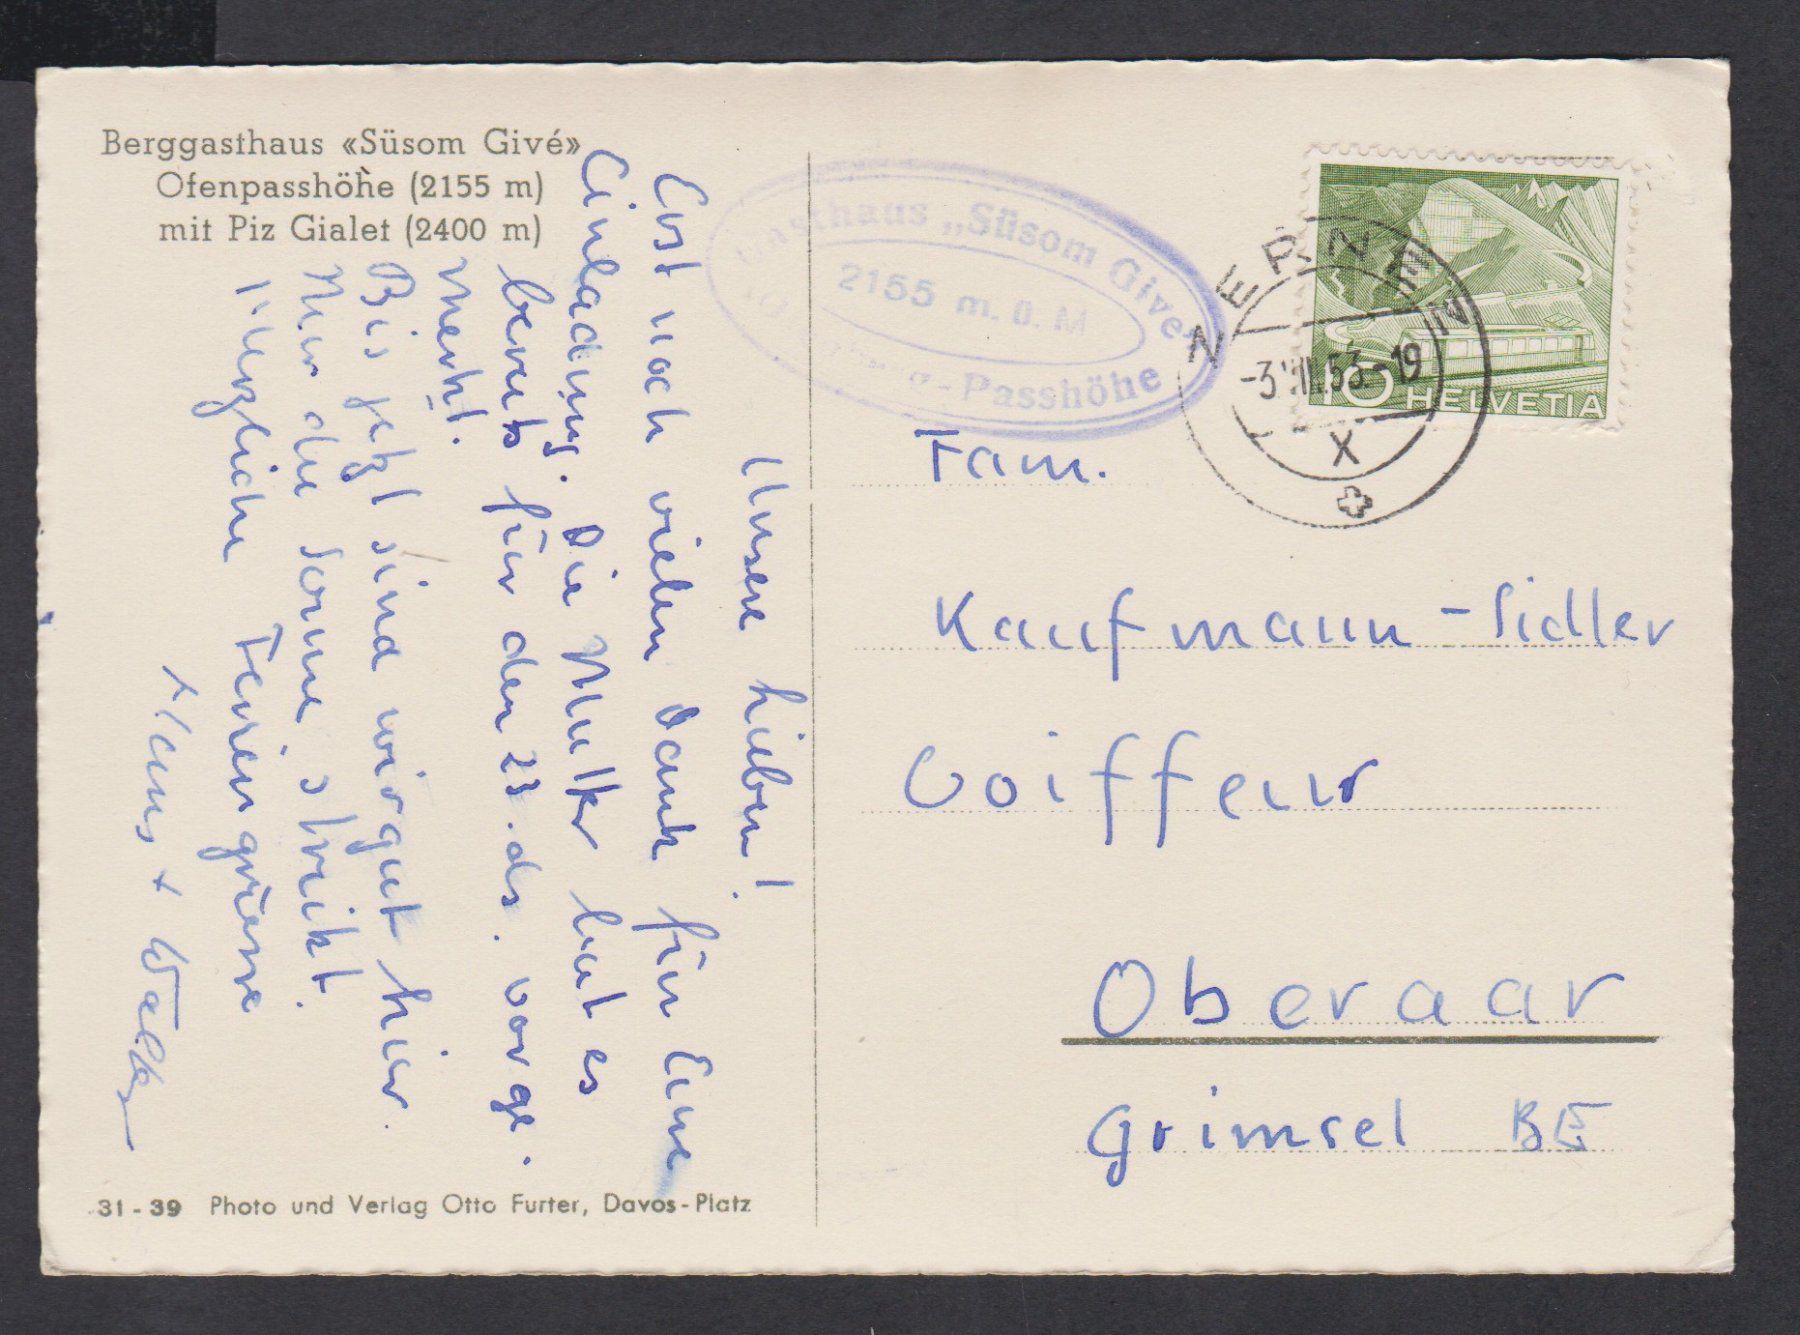 Berggasthaus «Süsom Givé»
Ofenpasshöhe (2155 m)
mit Piz Gialet (2400 m)
Unsere Lieben!
Erst noch vielen Dank für Eure
Einladung. Die Mutter hat es
bereits für den 23. ds. vorge-
merkt.
Bis jetzt sind wir gut hier.
Nur die Sonne streikt.
Herzliche Feriengrüsse
Hans + Walter
31-39 Photo und Verlag Otto Furter, Davos-Platz
Gasthaus „Süsom Givé"
2155 m. ü. M
-Passhöhe
ZERNEZ
-3. 53.-19
X
10 HELVETIA
Fam.
Kaufmann-Sidler
Coiffeur
Oberaar
Grimsel BE